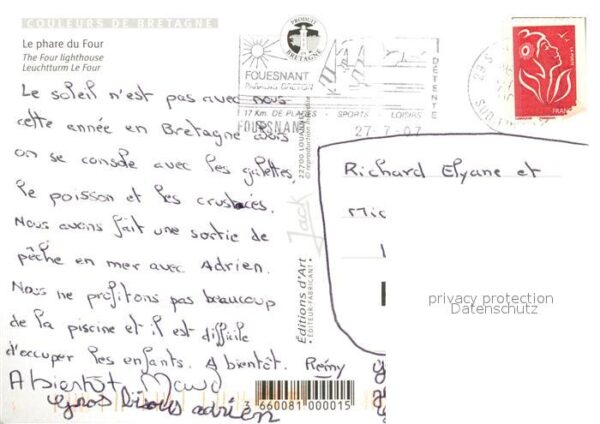 COULEURS DE BRETAGNE
Le phare du Four
The Four lighthouse
Leuchtturm Le Four
Le soleil n'est pas avec nous
cette année en Bretagne mais
on se console avec les galettes,
le poisson et les crustacés.
Nous avons fait une sortie de
pêche en mer avec Adrien.
Nous ne profitons pas beaucoup
de la piscine et il est difficile
d'occuper les enfants. A bientôt. Rémy
A bientôt Maud
gros bisous adrien
PRODUIT EN BRETAGNE
FOUESNANT
17 Km DE PLAGES - SPORTS LOISIRS
DÉTENTE
FOUESNANT
27-7-07
Jack
Éditions d'Art
ÉDITEUR-FABRICANT
3 660081 000015
FRANCE
Richard Elyane et
privacy protection
Datenschutz